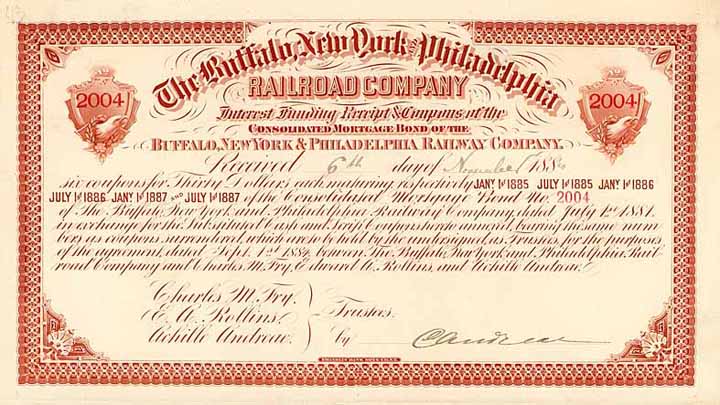 The Buffalo, New York and Philadelphia
RAILROAD COMPANY
2004 2004
Interest Funding Receipt & Coupons of the
CONSOLIDATED MORTGAGE BOND OF THE
BUFFALO, NEW YORK & PHILADELPHIA RAILWAY COMPANY.
Received 6th day of November 188
six coupons for Thirty Dollars each, maturing respectively JANY 1st 1885 JULY 1st 1885 JANY 1st 1886
JULY 1st 1886 JANY 1st 1887 AND JULY 1st 1887 of the Consolidated Mortgage Bond No. 2004
of The Buffalo, New York and Philadelphia Railway Company, dated July 1st 1881.
in exchange for the Substituted Cash and Scrip Coupons hereto annexed, bearing the same num
bers as coupons surrendered, which are to be held by the undersigned, as Trustees, for the purposes
of the agreement, dated Sept. 1st 1884 between The Buffalo, New York and Philadelphia Rail-
road Company and Charles M. Fry, Edward A. Rollins, and Achille Andreae.
Charles M. Fry.
E. A. Rollins.
Achille Andreae.
Trustees.
by